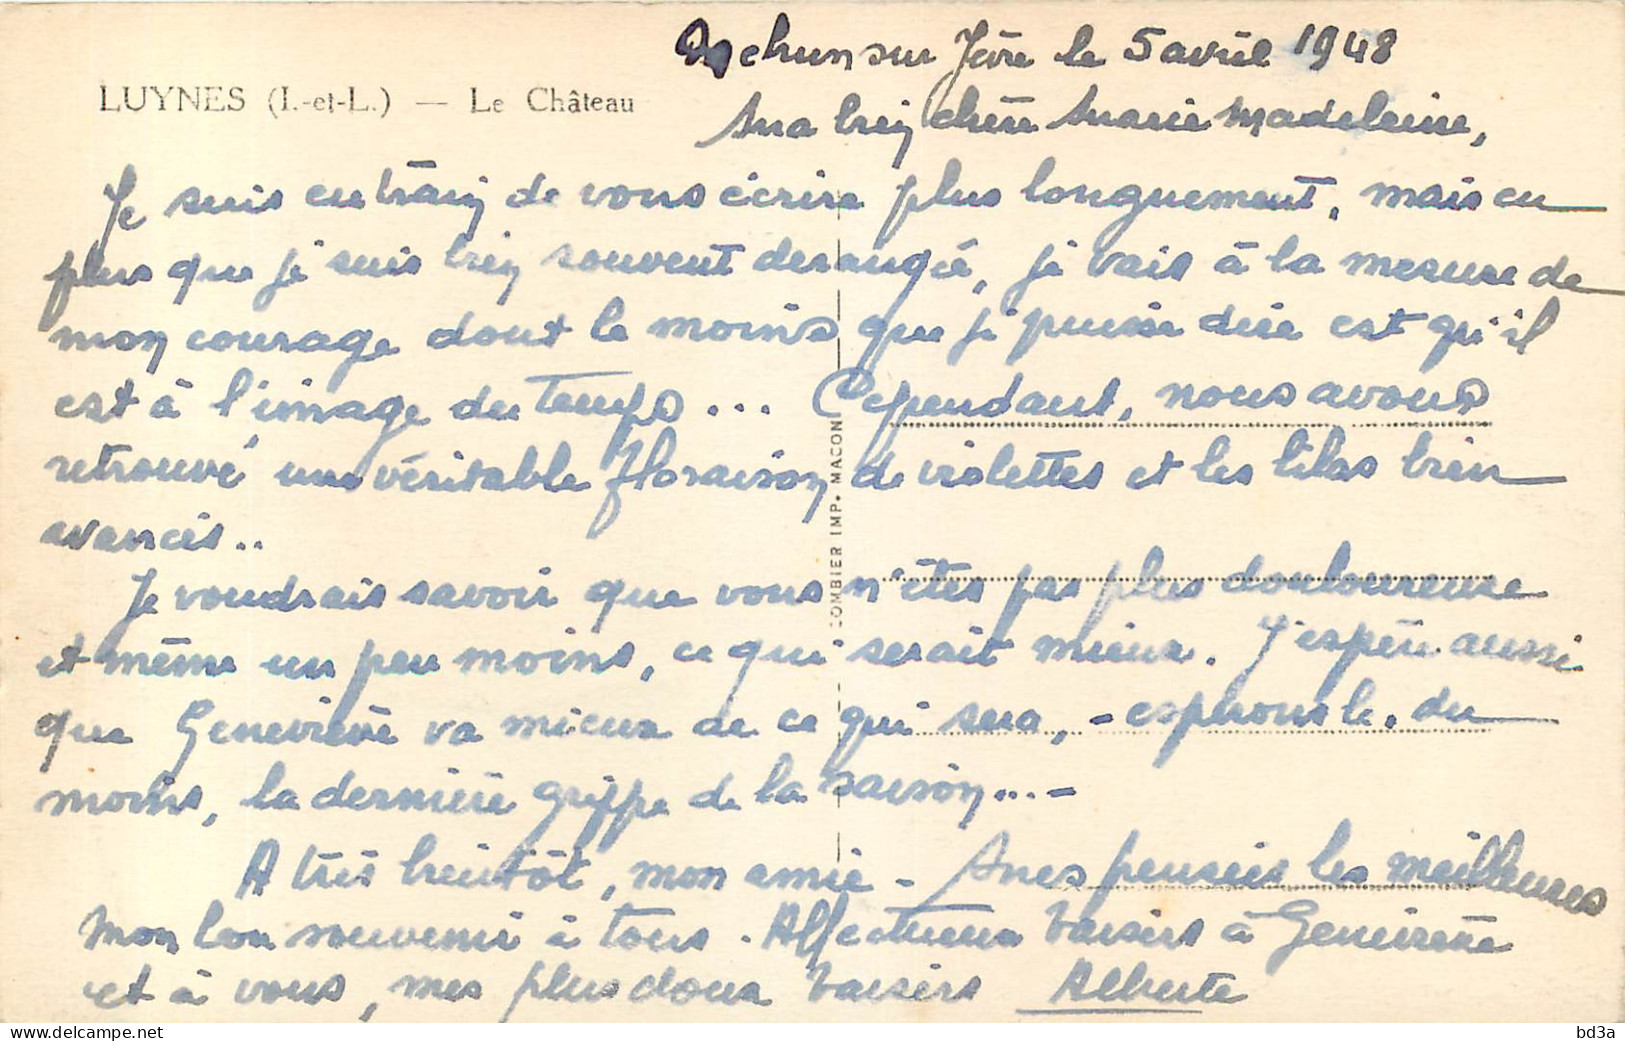 Mehun sur Yèvre le 5 avril 1948
LUYNES (I.-et-L.) — Le Château
Ma bien chère Marie Madeleine,
Je suis en train de vous écrire plus longuement, mais en
plus que je suis bien souvent derangée, je vais à la mesure de
mon courage dont le moins que je puisse dire est qu'il
est à l'image du temps... Cependant, nous avons
retrouvé une véritable floraison de violettes et les lilas bien
avancés..
Je voudrais savoir que vous n'êtes pas plus douloureuse
et même un peu moins, ce qui serait mieux. J'espère aussi
que Geneviève va mieux de ce qui sera, - espérons le, du
moins, la dernière grippe de la saison...-
A très bientôt, mon amie - Mes pensées les meilleures
Mon bon souvenir à tous. Affectueux baisers à Geneviève
et à vous, mes plus doux baisers Alberte
COMBIER IMP. MACON
bd3a